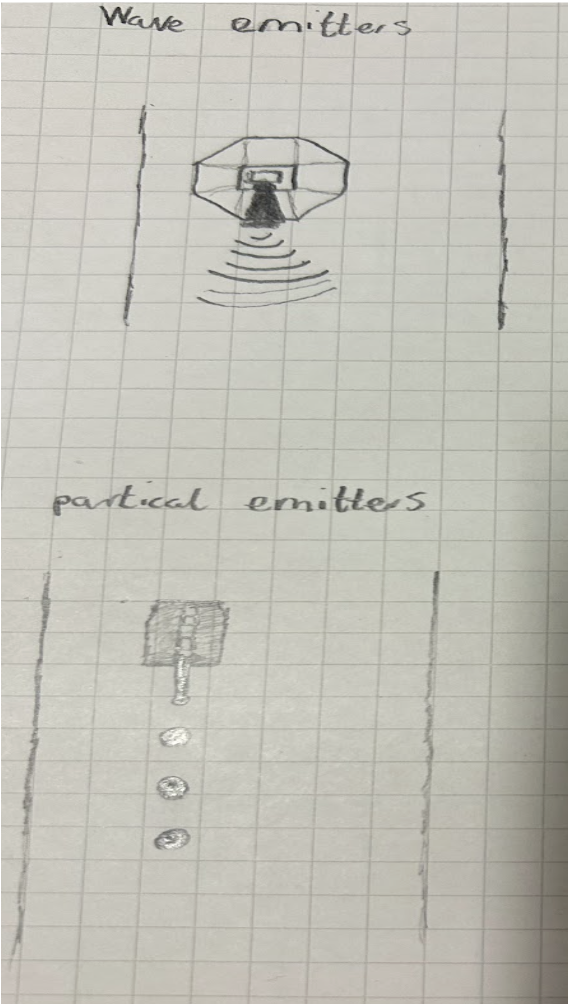 Wave emitters
partical emitters